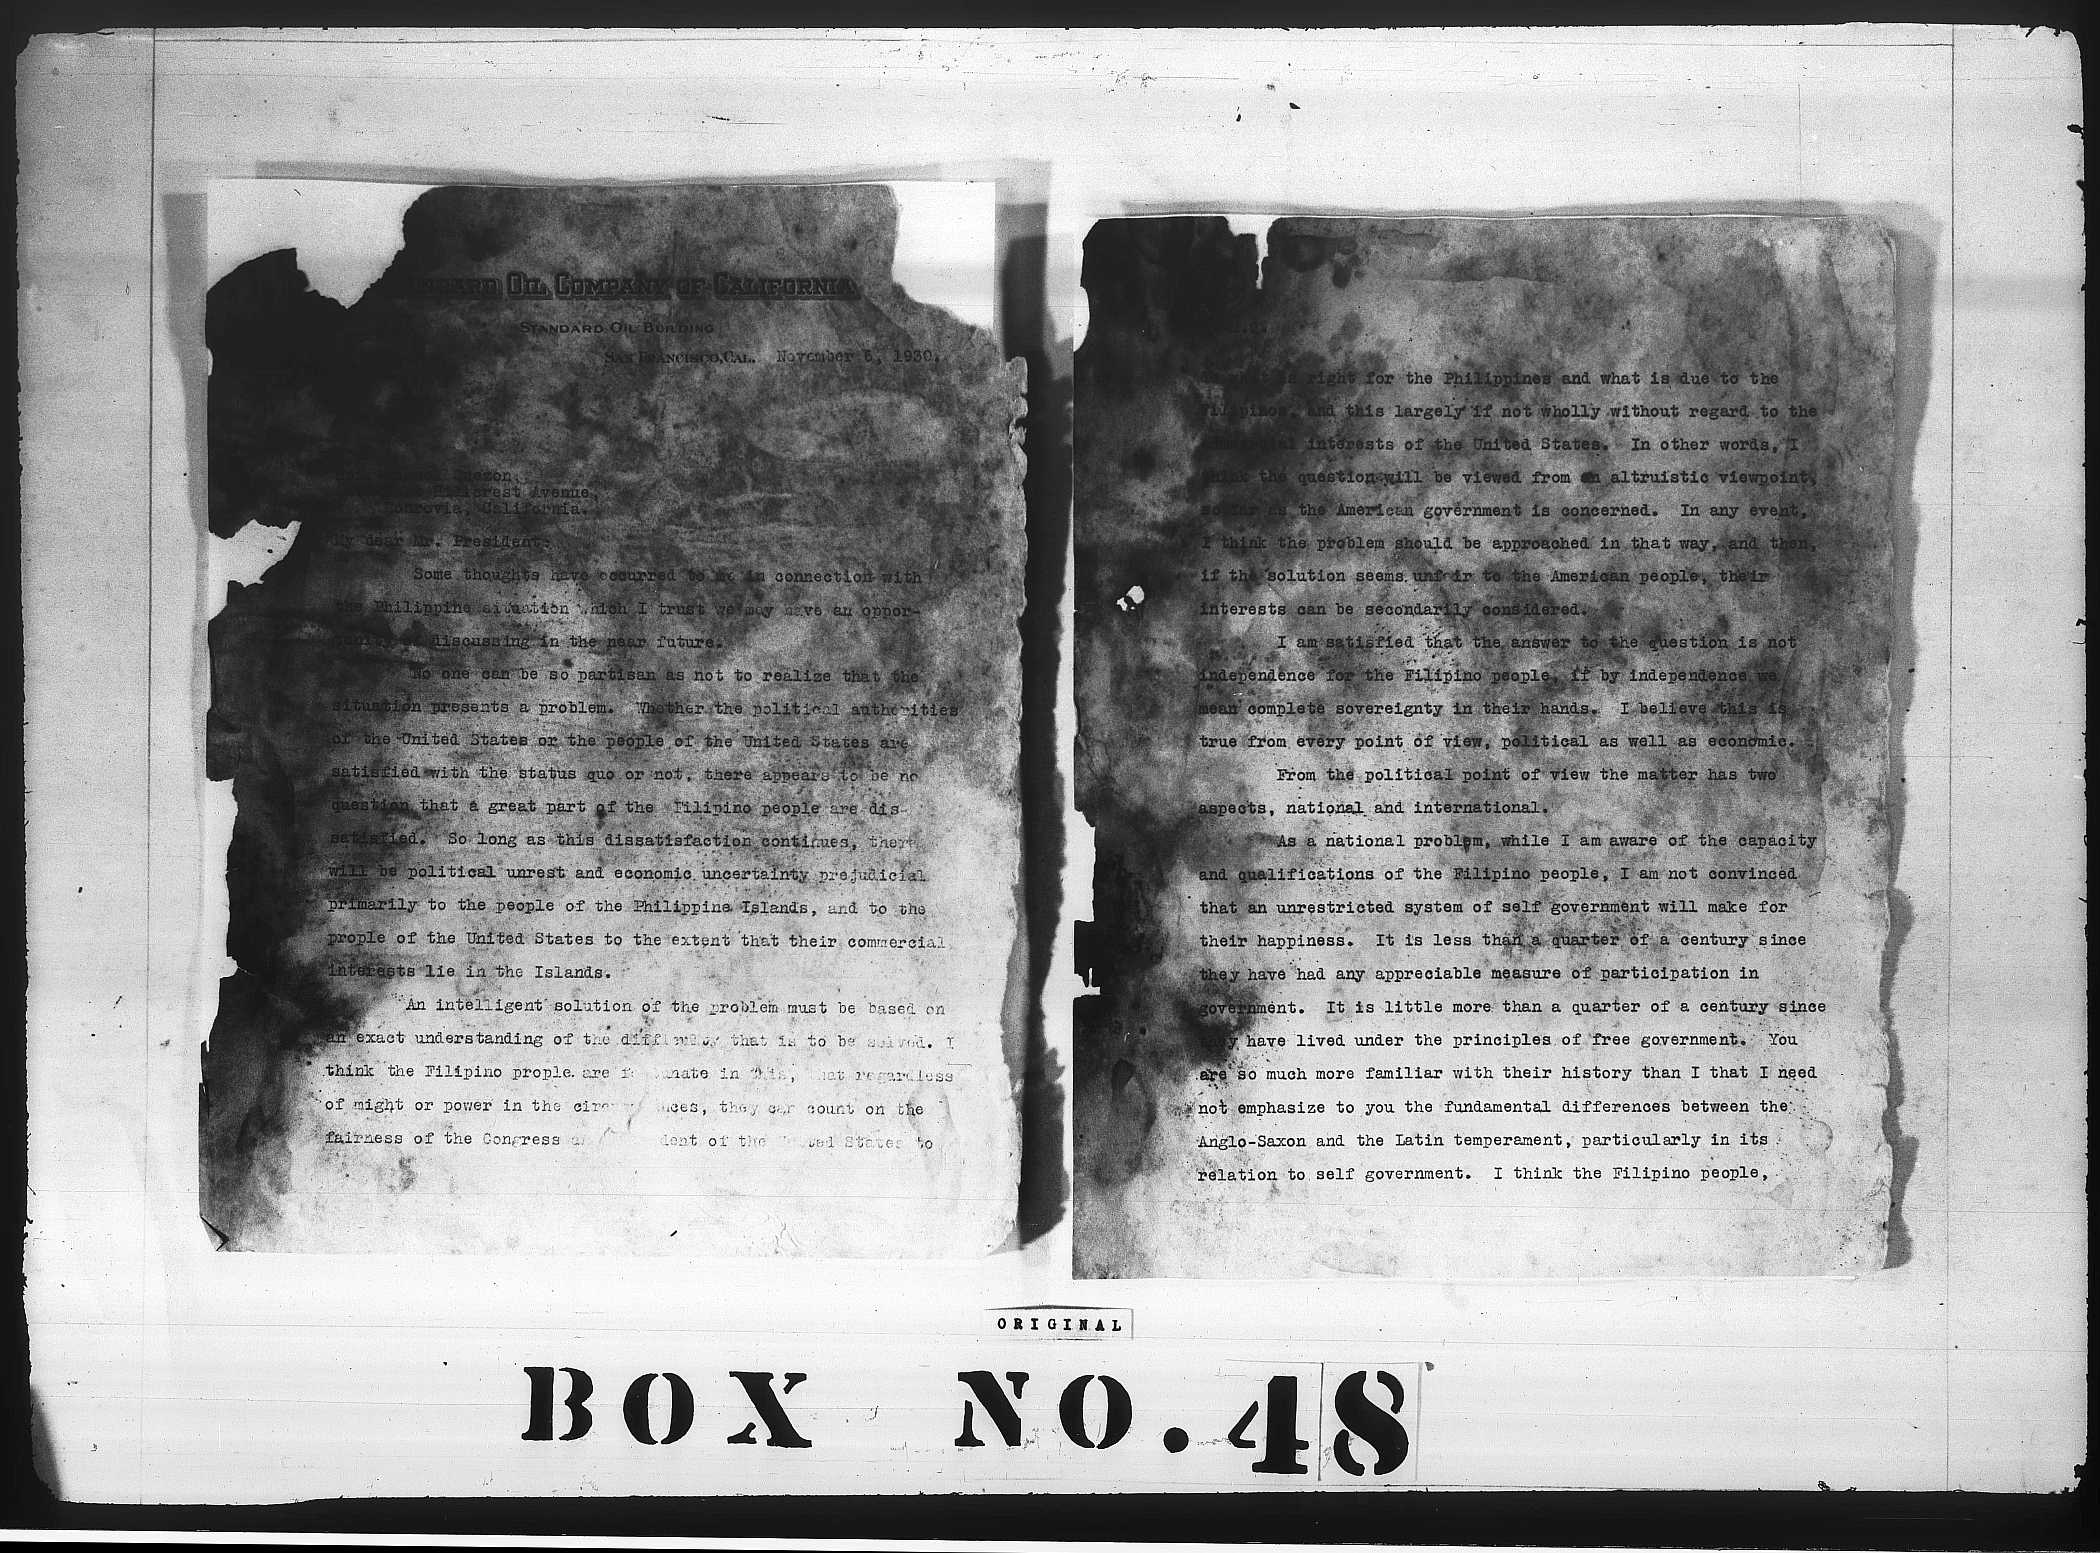 OIL COMPANY OF CALIFORNIA
STANDARD OIL BUILDING
SAN FRANCISCO, CAL. November 6, 1930.
Quezon,
Hillcrest Avenue,
Monrovia, California.
My dear Mr. President:
Some thoughts have occurred to me in connection with
the Philippine situation which I trust we may have an oppor-
discussing in the near future.
No one can be so partisan as not to realize that the
situation presents a problem. Whether the political authorities
of the United States or the people of the United States are
satisfied with the status quo or not, there appears to be no
question that a great part of the Filipino people are dis-
satisfied. So long as this dissatisfaction continues, there
will be political unrest and economic uncertainty prejudicial
primarily to the people of the Philippine Islands, and to the
prople of the United States to the extent that their commercial
interests lie in the Islands.
An intelligent solution of the problem must be based on
an exact understanding of the difficulty that is to be solved. I
think the Filipino prople are in this, that regardless
of might or power in the they can count on the
fairness of the Congress of the United States to
right for the Philippines and what is due to the
Filipinos, and this largely if not wholly without regard to the
interests of the United States. In other words, I
think the question will be viewed from an altruistic viewpoint,
so far as the American government is concerned. In any event,
I think the problem should be approached in that way, and then,
if the solution seems unfair to the American people, their
interests can be secondarily considered.
I am satisfied that the answer to the question is not
independence for the Filipino people, if by independence we
mean complete sovereignty in their hands. I believe this is
true from every point of view, political as well as economic.
From the political point of view the matter has two
aspects, national and international.
As a national problem, while I am aware of the capacity
and qualifications of the Filipino people, I am not convinced
that an unrestricted system of self government will make for
their happiness. It is less than a quarter of a century since
they have had any appreciable measure of participation in
government. It is little more than a quarter of a century since
they have lived under the principles of free government. You
are so much more familiar with their history than I that I need
not emphasize to you the fundamental differences between the
Anglo-Saxon and the Latin temperament, particularly in its
relation to self government. I think the Filipino people,
ORIGINAL
BOX NO. 48